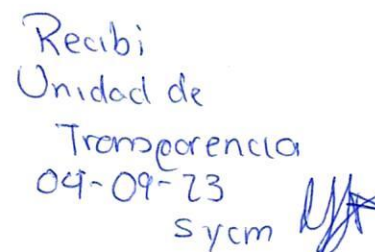 Recibi
Unidad de
Transparencia
04-09-23
sycm